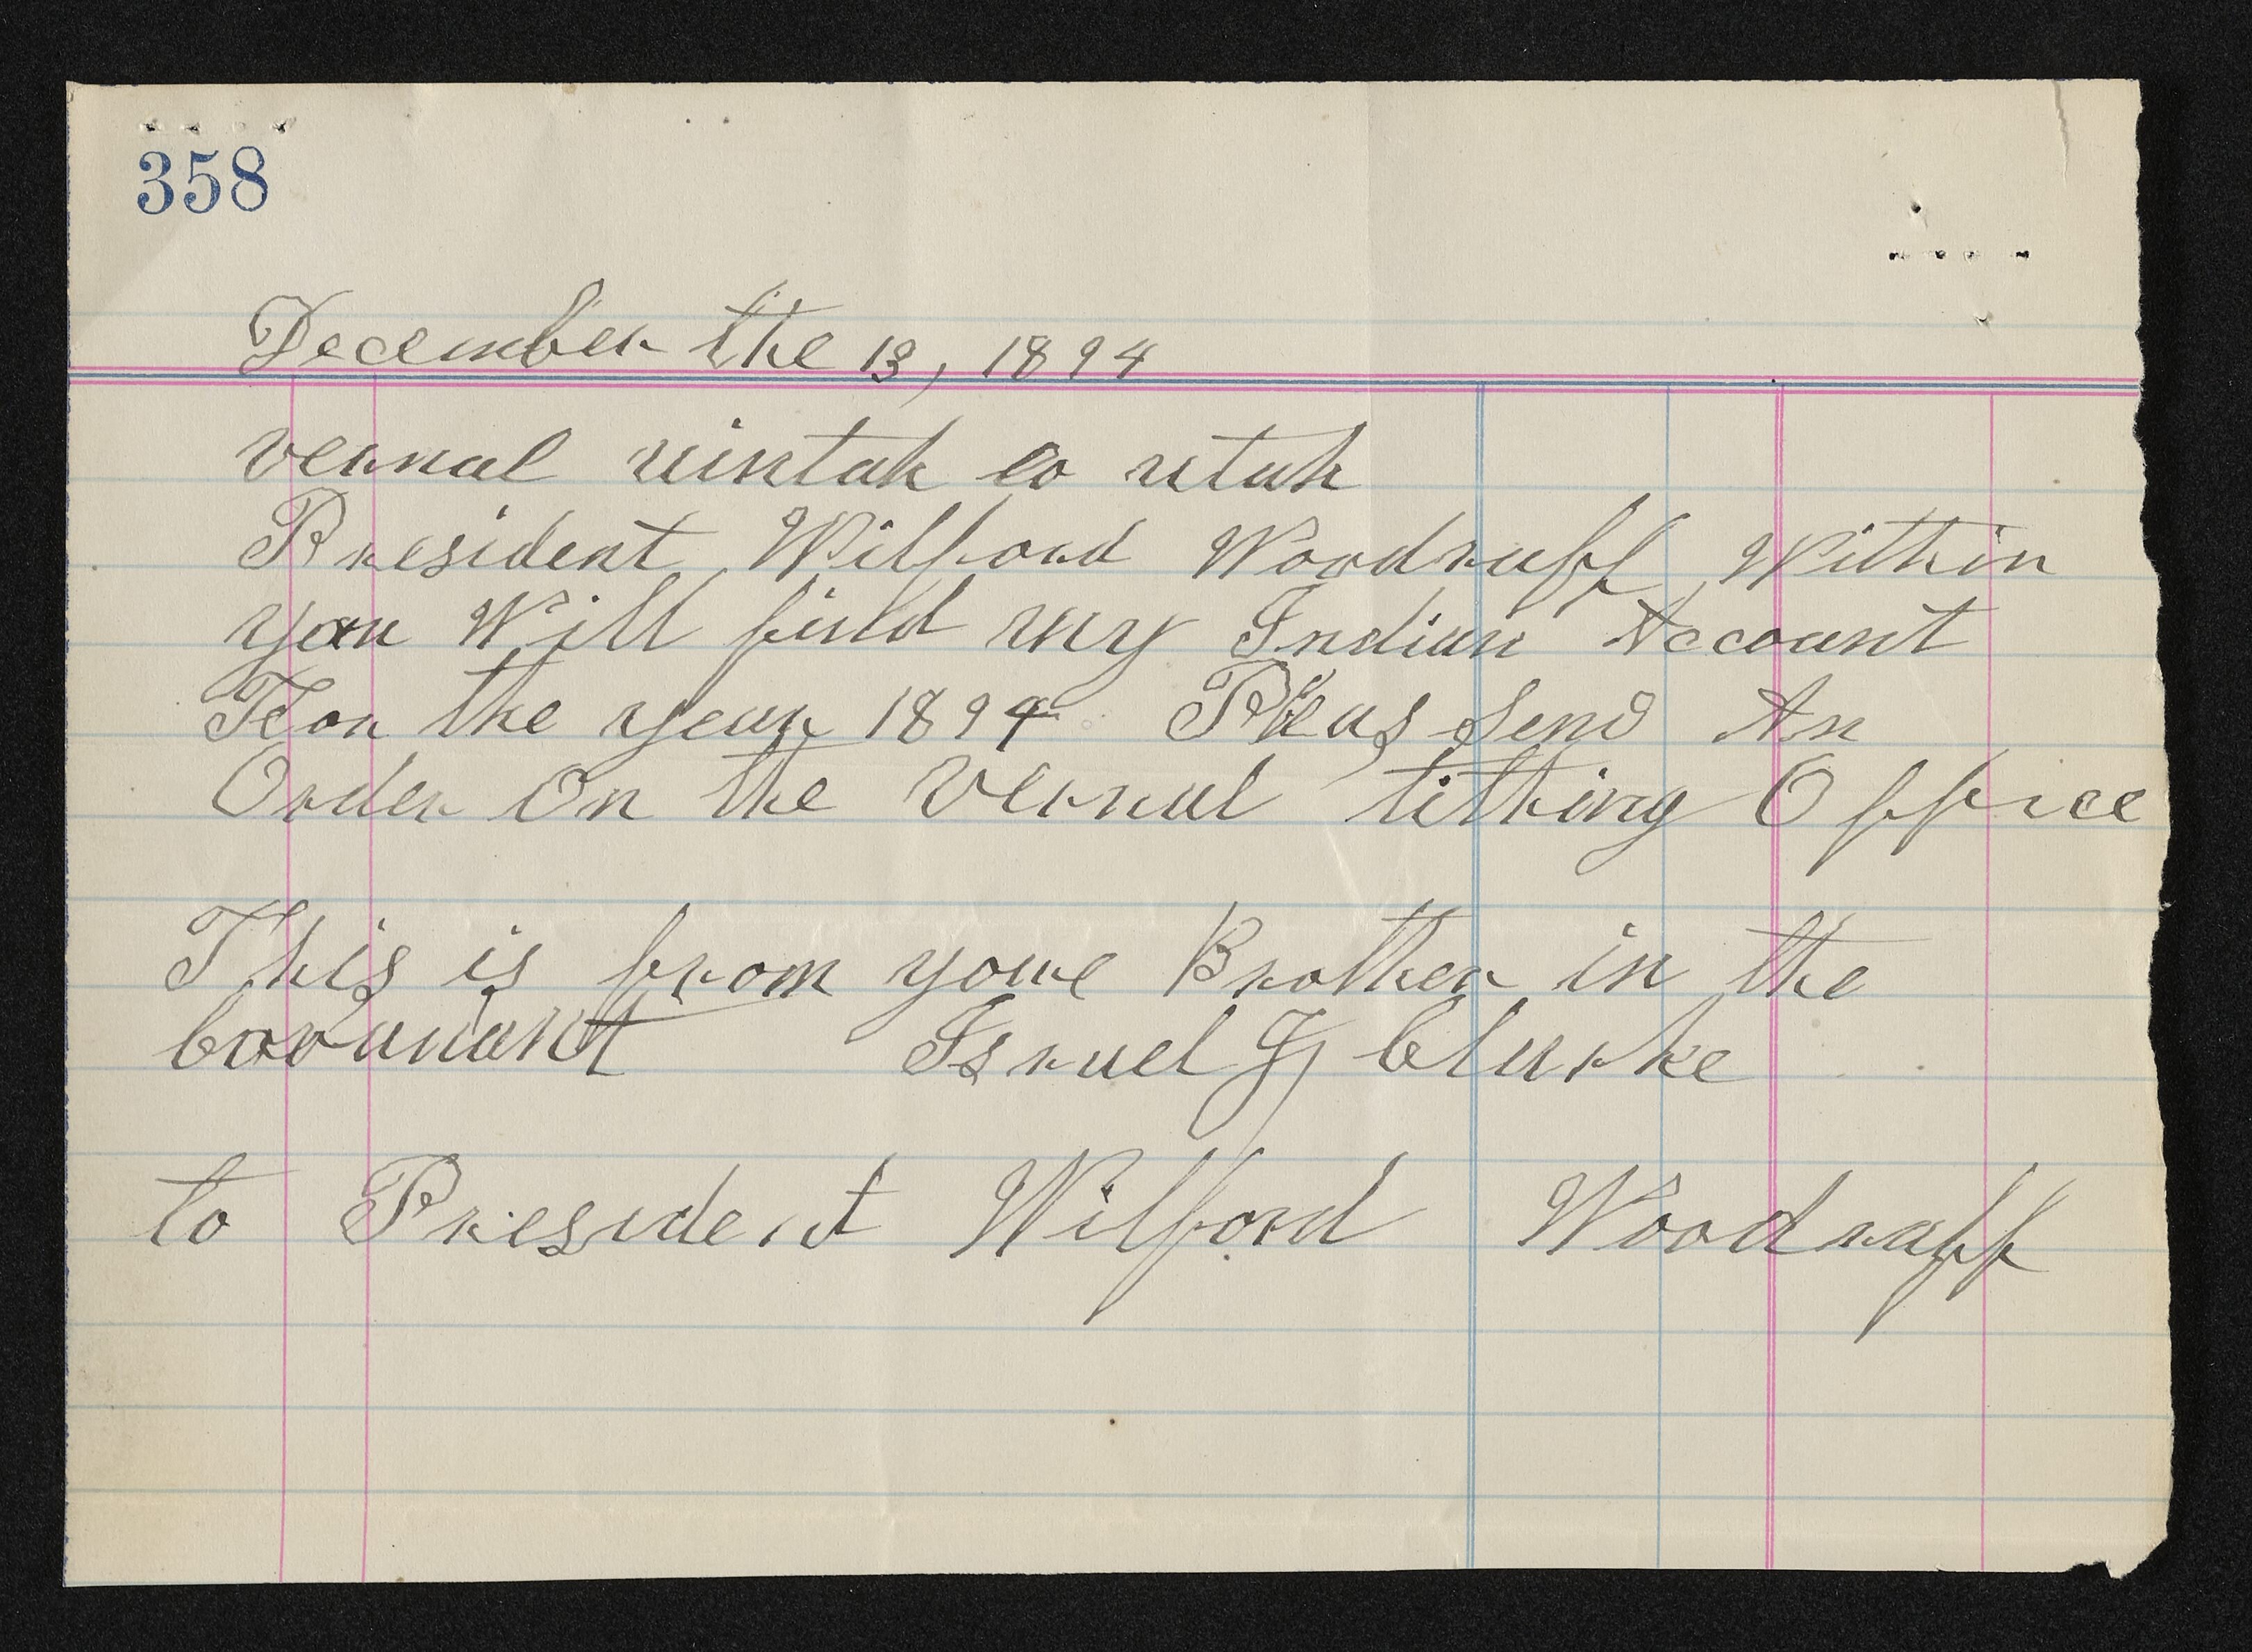 358
December the 13, 1894
vernal uintah co utah
President Wilford Woodruff Within
you Will find my Indian Account
For the year 1894 Pleas send An
Order On the Vernal tithing Office
This is from youre Brother in the
Covanant Israel J Clarke
to President Wilford Woodruff